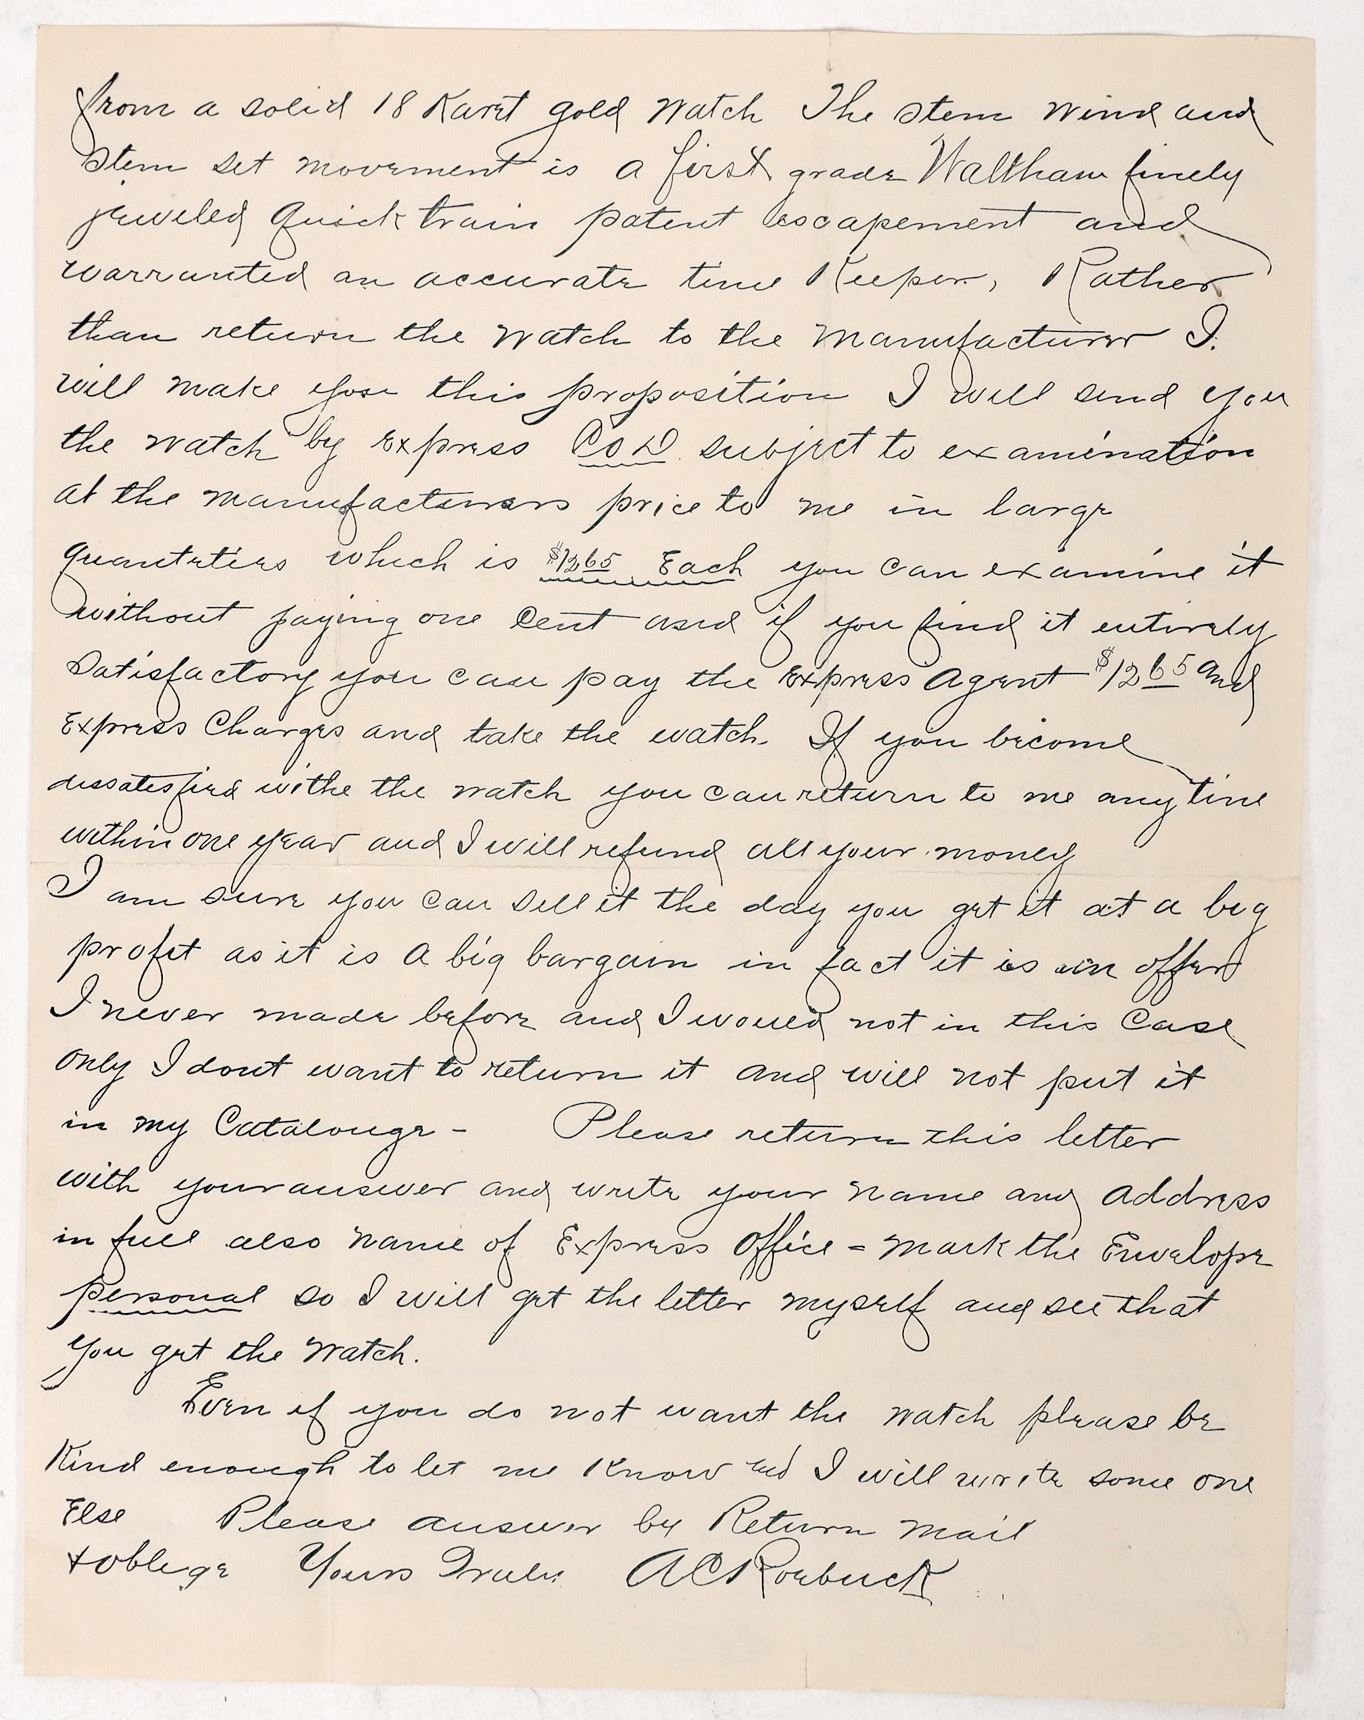 from a solid 18 Karet gold watch The stem wind and
stem set movement is a first grade Waltham finely
jeweled Quick train patent escapement and
warranted an accurate time Keeper, Rather
than return the watch to the manufacturer I.
will make you this proposition I will send you
the watch by Express COD. subject to examination
at the manufacturers price to me in large
quantities which is $12.65 Each you can examine it
without paying one Cent and if you find it entirely
Satisfactory you can pay the Express Agent $12.65 and
Express Charges and take the watch. If you become
dissatesfied withe the watch you can return to me any time
within one year and I will refund all your money
I am sure you can sell it the day you get it at a big
profit as it is a big bargain in fact it is an offer
I never made before and I would not in this Case
only I dont want to return it and will not put it
in my Catalouge - Please return this letter
with your answer and write your name and address
in full also name of Express Office - mark the Envelope
personal so I will get the letter myself and see that
you get the watch.
Even if you do not want the watch please be
Kind enough to let me Know and I will write some one
Else Please answer by Return mail
& oblege Yours Truly A C Roebuck